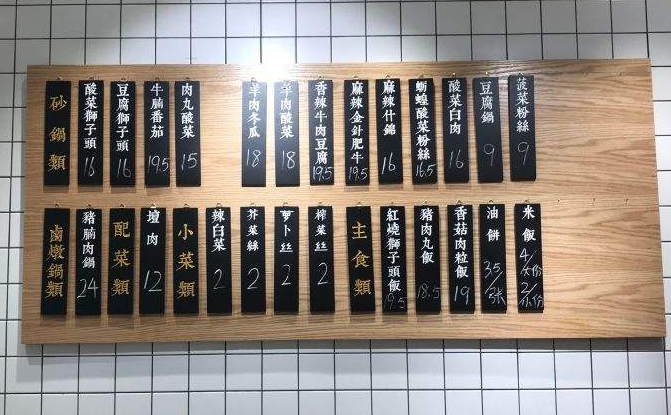 砂鍋類
酸菜獅子頭 16
豆腐獅子頭 16
牛腩番茄 19.5
肉丸酸菜 15
羊肉冬瓜 18
羊肉酸菜 18
香辣牛肉豆腐 19.5
麻辣金針肥牛 19.5
麻辣什錦 16
蛎蝗酸菜粉絲 16.5
酸菜白肉 16
豆腐鍋 9
菠菜粉絲 9
鹵燉鍋類
豬腩肉鍋 24
配菜類
壇肉 12
小菜類
辣白菜 2
芥菜絲 2
萝卜丝 2
榨菜丝 2
主食類
紅燒獅子頭飯 19.5
豬肉丸飯 18.5
香菇肉粒飯 19
油餅 3.5/张
米飯 4/大份 2/小份